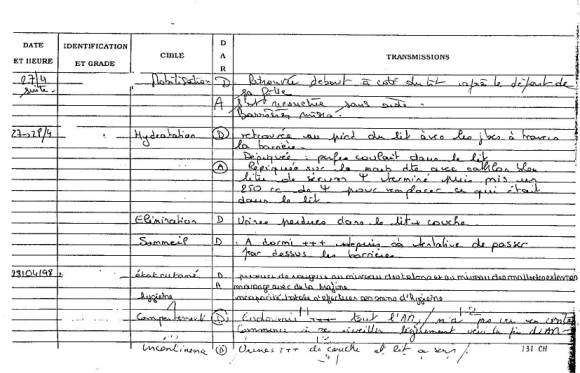 DATE
ET HEURE
IDENTIFICATION
ET GRADE
CIBLE
D
A
R
TRANSMISSIONS
27/4
suite.
Mobilisation D Retrouvée debout à côté du lit après le départ de
sa fille
A s'est recouchée sans aide.
Barrières mises.
27-28/4 Hydratation D retrouvée au pied du lit avec les jbes à travers
la barrière.
Dépiquée : perfee coulait dans le lit.
A Repiquée sur la main dte avec cathlon bleu
terminé puis mis un
250 cc de pour remplacer ce qui était
dans le lit.
Elimination D Urines perdues dans le lit + couche.
Sommeil D : A dormi +++ depuis sa tentative de passer
par dessus les barrières.
28/04/98 état cutané D de rougeurs au niveau des talons et au niveau des
A massage avec de la
hygiène incapacité totale d'effectuer ses soins d'hygiène
Comportement D Endormie +++ tout l'AM, n'a pas
Commence à se réveiller légèrement vers la fin d'AM.
incontinence D Urines +++ de couche et lit
131 CH